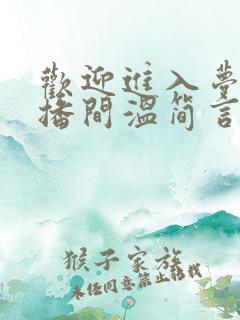 歡迎進入夢
播間溫简言
猴子家族
未經同意禁止転载